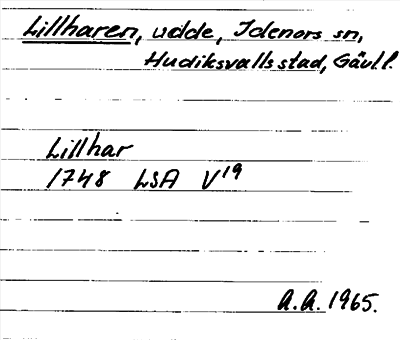 Lillharen, udde, Idenors sn,
Hudiksvalls stad, Gävl.l.
Lillhar
1748 LSA V19
A.A. 1965.